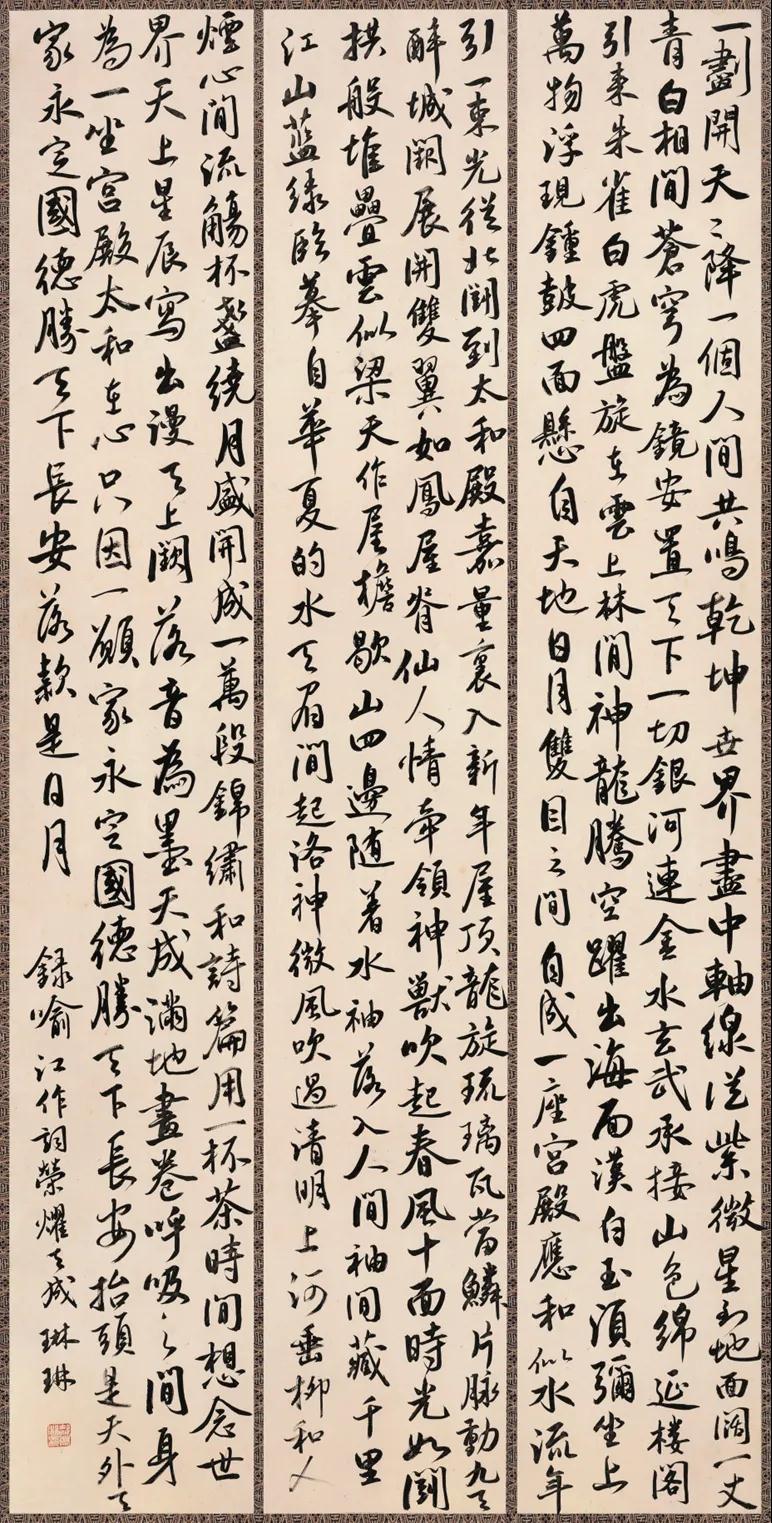 一劃開天天降一個人間共鳴乾坤世界盡中軸線從紫微星到地面闊一丈
青白相間蒼穹為鏡安置天下一切銀河連金水玄武承接山色綿延楼閣
引来朱雀白虎盤旋在雲上林間神龍騰空躍出海面漢白玉須彌坐上
萬物浮現鍾鼓四面懸自天地日月雙目之間自成一座宫殿應和似水流年
引一束光從北闕到太和殿嘉量裏入新年屋顶龍旋琉璃瓦當鱗片脉動九天
醉城闕展開雙翼如鳳屋脊仙人情牽領神獸吹起春風十面時光如闕
拱般堆疊雲似梁天作屋檐歇山四邊随着水袖落入人間袖間藏千里
江山藍緑臨摹自華夏的水天眉間起洛神微風吹過清明上河垂柳和人
煙心間流觴杯盞繞月盛開成一萬段錦繡和詩篇用一杯茶時間想念世
界天上星辰寫出漫天上闕落音為墨天成滿地畫卷呼吸之間身
為一坐宫殿太和在心只因一願家永定國德勝天下長安抬頭是天外天
家永定國德勝天下長安落款是日月
録喻江作詞榮耀天成琳琳